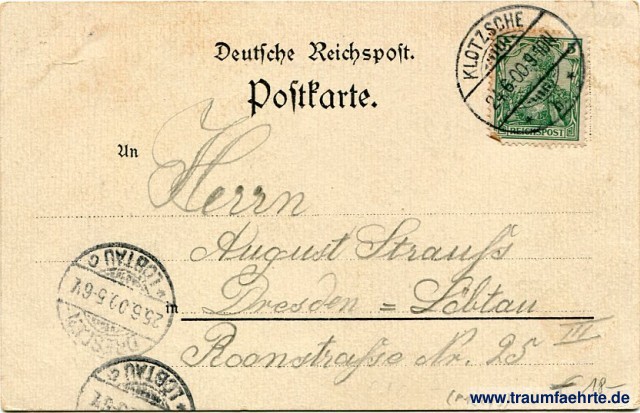 Deutsche Reichspost.
Postkarte.
KLOTZSCHE
24.6.00.9-10N
REICHSPOST
5
An
Herrn
August Strauß
in Dresden = Löbtau
Roonstraße Nr. 25 III
* LÖBTAU c
25.6.00.5-6V.
DRESDEN
* LÖBTAU c
18-
www.traumfaehrte.de